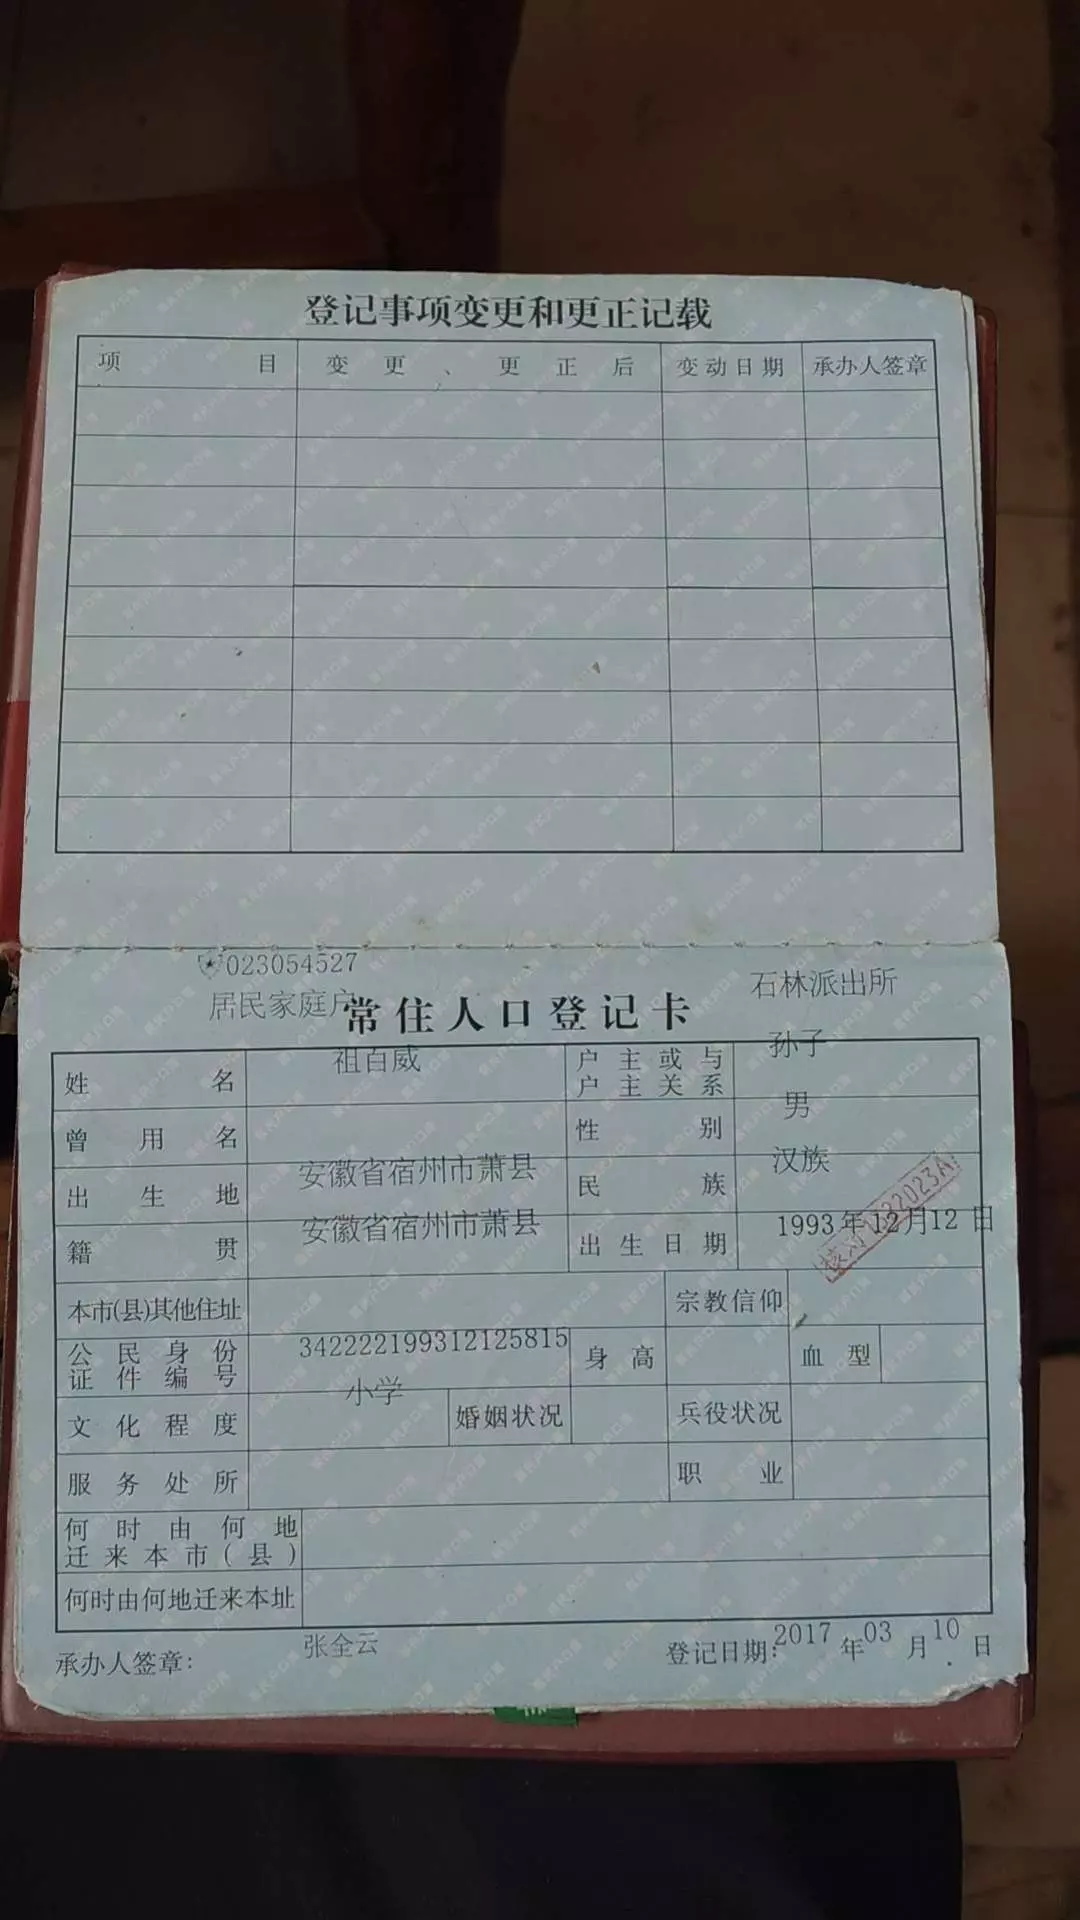 登记事项变更和更正记载
项目 变更、更正后 变动日期 承办人签章
023054527
居民家庭户 石林派出所
常住人口登记卡
姓名 祖自威 户主或与户主关系 孙子
曾用名 性别 男
出生地 安徽省宿州市萧县 民族 汉族
籍贯 安徽省宿州市萧县 出生日期 1993年12月12日
本市(县)其他住址 宗教信仰
公民身份证件编号 342222199312125815 身高 血型
文化程度 小学 婚姻状况 兵役状况
服务处所 职业
何时由何地迁来本市(县)
何时由何地迁来本址
承办人签章: 张全云 登记日期: 2017年03月10日